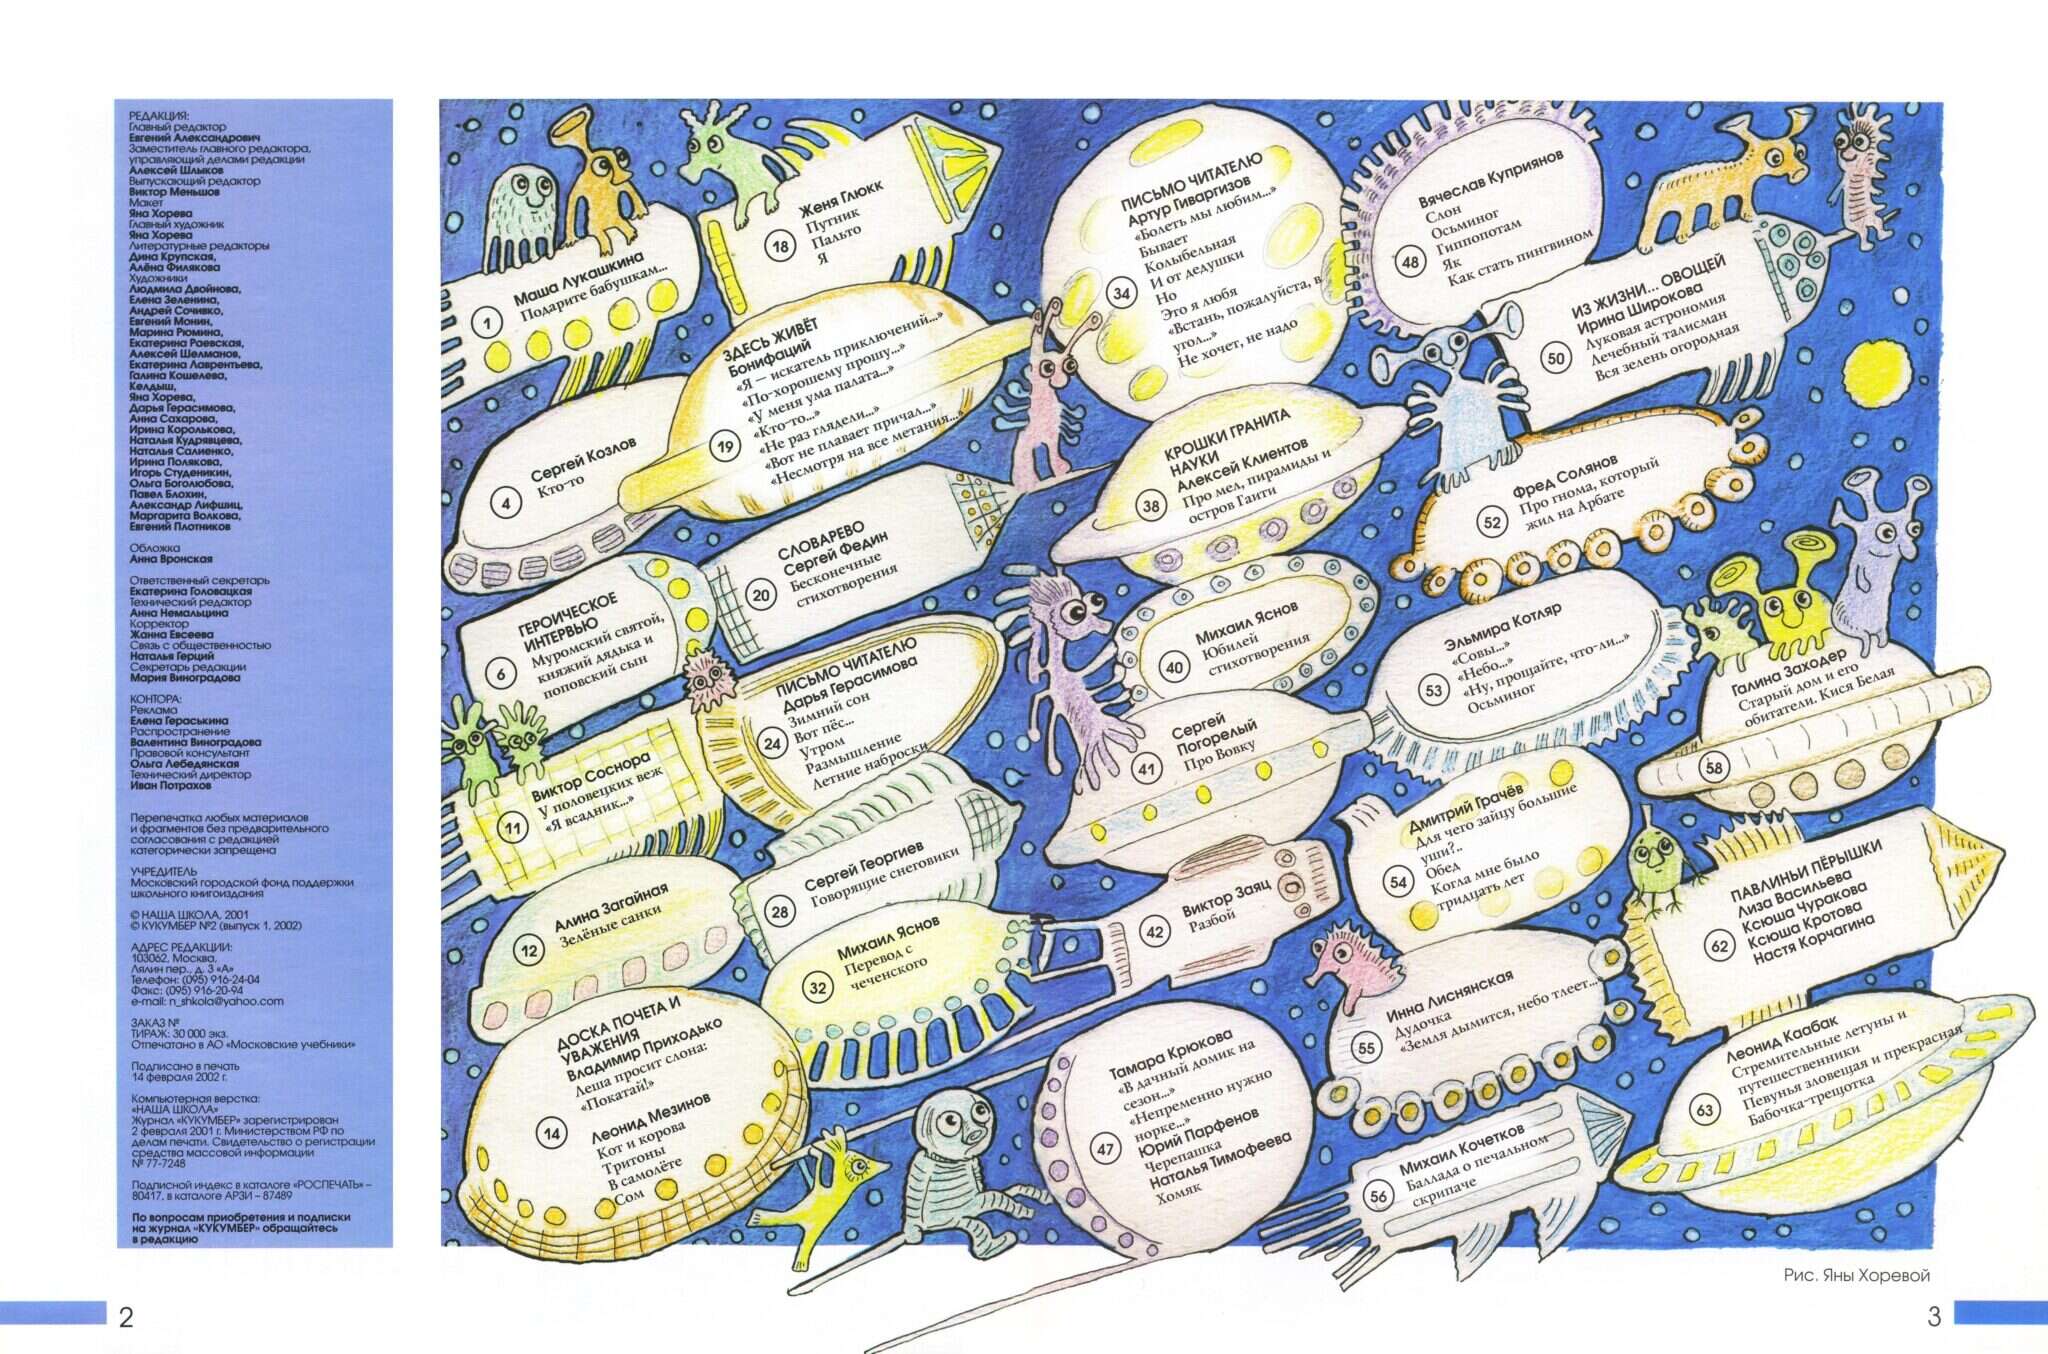 РЕДАКЦИЯ:
Главный редактор
Евгений Александрович
Заместитель главного редактора,
управляющий делами редакции
Алексей Шлыков
Выпускающий редактор
Виктор Меньшов
Макет
Яна Хорева
Главный художник
Яна Хорева
Литературные редакторы
Дина Крупская,
Алёна Филякова
Художники
Людмила Двойнова,
Елена Зеленина,
Андрей Сочивко,
Евгений Монин,
Марина Рюмина,
Екатерина Раевская,
Алексей Шелманов,
Екатерина Лаврентьева,
Галина Кошелева,
Келдыш,
Яна Хорева,
Дарья Герасимова,
Анна Сахарова,
Ирина Королькова,
Наталья Кудрявцева,
Наталья Салиенко,
Ирина Полякова,
Игорь Студеникин,
Ольга Боголюбова,
Павел Блохин,
Александр Лифшиц,
Маргарита Волкова,
Евгений Плотников
Обложка
Анна Вронская
Ответственный секретарь
Екатерина Головацкая
Технический редактор
Анна Немальцина
Корректор
Жанна Евсеева
Связь с общественностью
Наталья Герций
Секретарь редакции
Мария Виноградова
КОНТОРА:
Реклама
Елена Гераськина
Распространение
Валентина Виноградова
Правовой консультант
Ольга Лебедянская
Технический директор
Иван Потрахов
Перепечатка любых материалов
и фрагментов без предварительного
согласования с редакцией
категорически запрещена
УЧРЕДИТЕЛЬ
Московский городской фонд поддержки
школьного книгоиздания
© НАША ШКОЛА, 2001
© КУКУМБЕР №2 (выпуск 1, 2002)
АДРЕС РЕДАКЦИИ:
103062, Москва,
Лялин пер., д. 3 «А»
Телефон: (095) 916-24-04
Факс: (095) 916-20-94
e-mail: n_shkola@yahoo.com
ЗАКАЗ №
ТИРАЖ: 30 000 экз.
Отпечатано в АО «Московские учебники»
Подписано в печать
14 февраля 2002 г.
Компьютерная верстка:
«НАША ШКОЛА»
Журнал «КУКУМБЕР» зарегистрирован
2 февраля 2001 г. Министерством РФ по
делам печати. Свидетельство о регистрации
средства массовой информации
№ 77-7248
Подписной индекс в каталоге «РОСПЕЧАТЬ» –
80417, в каталоге АРЗИ – 87489
По вопросам приобретения и подписки
на журнал «КУКУМБЕР» обращайтесь
в редакцию
2
1
Маша Лукашкина
Подарите бабушкам...
4
Сергей Козлов
Кто-то
6
ГЕРОИЧЕСКОЕ
ИНТЕРВЬЮ
Муромский святой,
княжий дядька и
поповский сын
11
Виктор Соснора
У половецких веж
«Я всадник...»
12
Алина Загайная
Зелёные санки
14
ДОСКА ПОЧЕТА И
УВАЖЕНИЯ
Владимир Приходько
Леша просит слона:
«Покатай!»
Леонид Мезинов
Кот и корова
Тритоны
В самолёте
Сом
18
Женя Глюкк
Путник
Пальто
Я
19
ЗДЕСЬ ЖИВЁТ
Бонифаций
«Я — искатель приключений...»
«По-хорошему прошу...»
«У меня ума палата...»
«Кто-то...»
«Не раз глядели...»
«Вот не плавает причал...»
«Несмотря на все метания...»
20
СЛОВАРЕВО
Сергей Федин
Бесконечные
стихотворения
24
ПИСЬМО ЧИТАТЕЛЮ
Дарья Герасимова
Зимний сон
Вот пёс...
Утром
Размышление
Летние наброски
28
Сергей Георгиев
Говорящие снеговики
32
Михаил Яснов
Перевод с
чеченского
34
ПИСЬМО ЧИТАТЕЛЮ
Артур Гиваргизов
«Болеть мы любим...»
Бывает
Колыбельная
И от дедушки
Но
Это я любя
«Встань, пожалуйста, в
угол...»
Не хочет, не надо
38
КРОШКИ ГРАНИТА
НАУКИ
Алексей Клиентов
Про мел, пирамиды и
остров Гаити
40
Михаил Яснов
Юбилей
стихотворения
41
Сергей
Погорелый
Про Вовку
42
Виктор Заяц
Разбой
47
Тамара Крюкова
«В дачный домик на
сезон...»
«Непременно нужно
норке...»
Юрий Парфенов
Черепашка
Наталья Тимофеева
Хомяк
48
Вячеслав Куприянов
Слон
Осьминог
Гиппопотам
Як
Как стать пингвином
50
ИЗ ЖИЗНИ... ОВОЩЕЙ
Ирина Широкова
Луковая астрономия
Лечебный талисман
Вся зелень огородная
52
Фред Солянов
Про гнома, который
жил на Арбате
53
Эльмира Котляр
«Совы...»
«Небо...»
«Ну, прощайте, что-ли...»
Осьминог
54
Дмитрий Грачёв
Для чего зайцу большие
уши?..
Обед
Когда мне было
тридцать лет
55
Инна Лиснянская
Дудочка
«Земля дымится, небо тлеет...»
56
Михаил Кочетков
Баллада о печальном
скрипаче
58
Галина Заходер
Старый дом и его
обитатели. Кися Белая
62
ПАВЛИНЬИ ПЁРЫШКИ
Лиза Васильева
Ксюша Чуракова
Ксюша Кротова
Настя Корчагина
63
Леонид Каабак
Стремительные летуны и
путешественники
Певунья зловещая и прекрасная
Бабочка-трещотка
Рис. Яны Хоревой
3